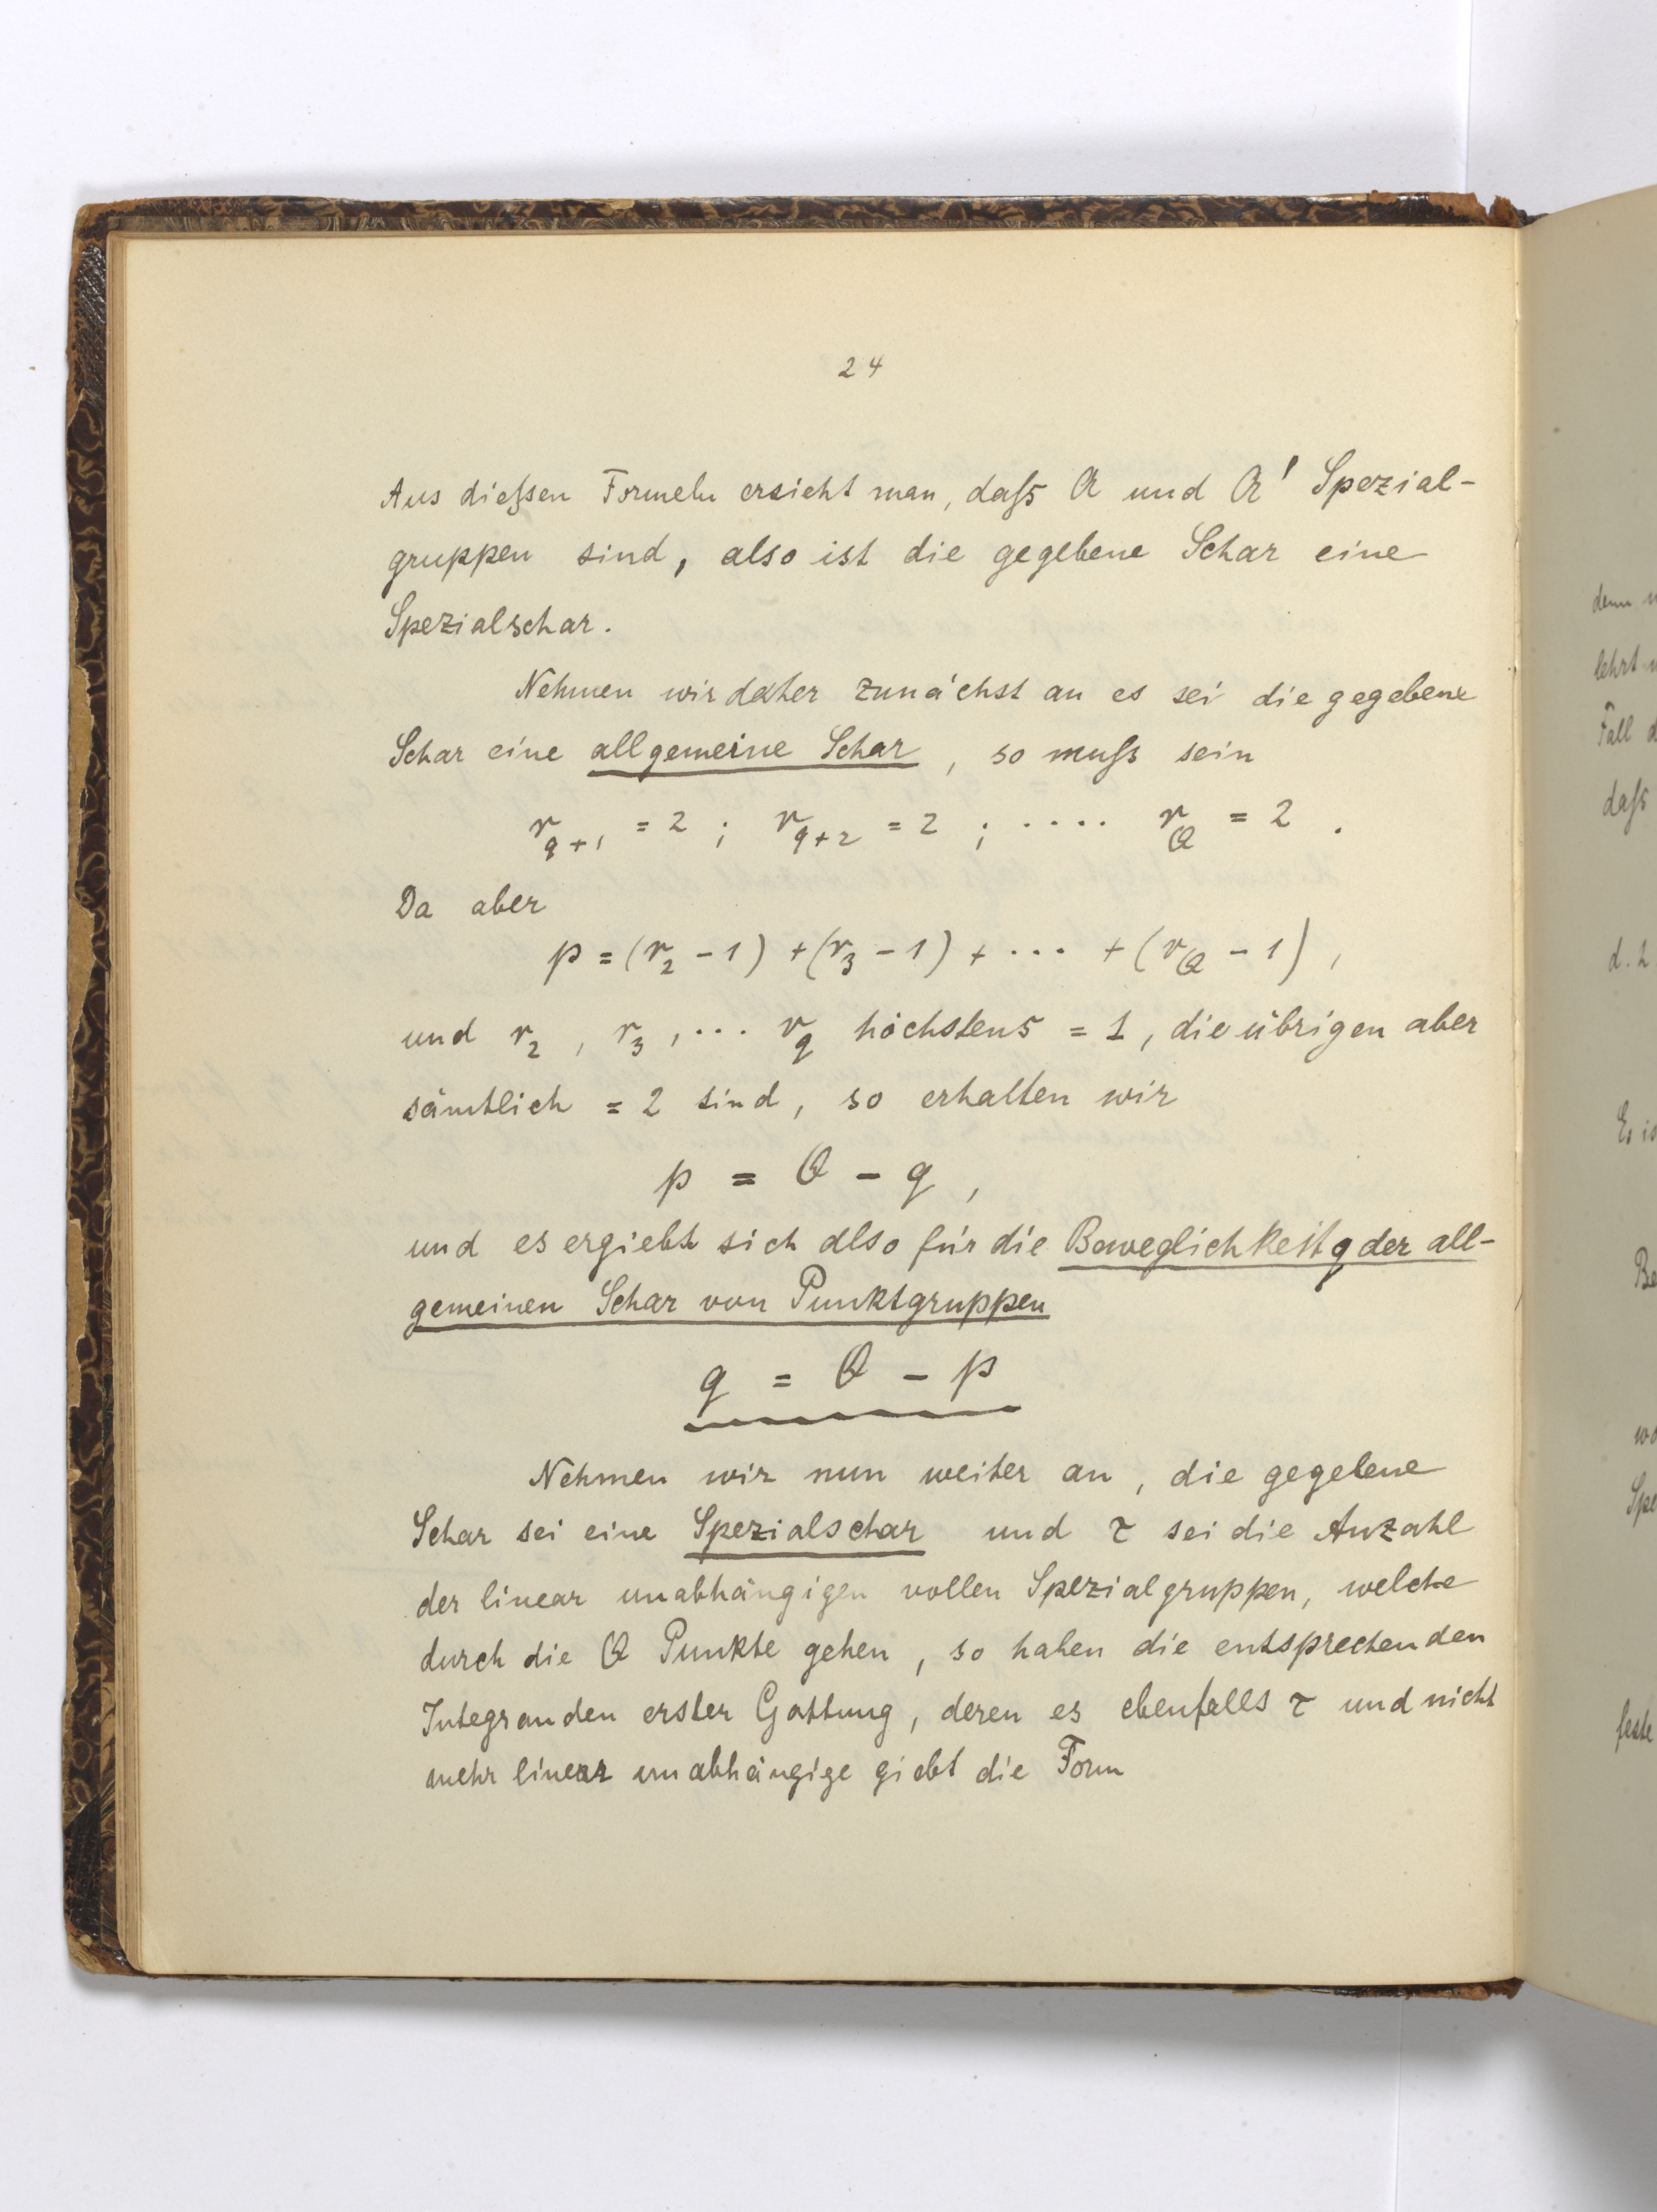 24
Aus dieſsen Formeln ersieht man, daſs Q und Q' Spezial-
gruppen sind, also ist die gegebene Schar eine
Spezialschar.
Nehmen wir daher zunächst an es sei die gegebene
Schar eine allgemeine Schar, so muſs sein
r_{q+1} = 2 ; r_{q+2} = 2 ; .... r_Q = 2 .
Da aber
p = (r_2 - 1) + (r_3 - 1) + ... + (r_Q - 1) ,
und r_2 , r_3 , ... r_q höchstens = 1, die übrigen aber
sämtlich = 2 sind, so erhalten wir
p = Q - q ,
und es ergiebt sich also für die Beweglichkeit q der all-
gemeinen Schar von Punktgruppen
q = Q - p
Nehmen wir nun weiter an, die gegebene
Schar sei eine Spezialschar und τ sei die Anzahl
der linear unabhängigen vollen Spezialgruppen, welche
durch die Q Punkte gehen, so haben die entsprechenden
Integranden erster Gattung, deren es ebenfalls τ und nicht
mehr linear unabhängige giebt die Form
denn
lehrt
Fall d
daſs
d. h
Es is
Be
wo
Spe
feste